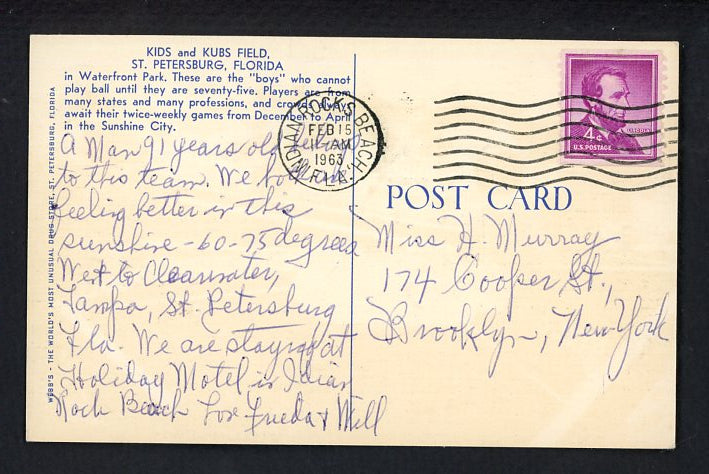 KIDS and KUBS FIELD,
ST. PETERSBURG, FLORIDA
in Waterfront Park. These are the "boys" who cannot
play ball until they are seventy-five. Players are from
many states and many professions, and crowds always
await their twice-weekly games from December to April
in the Sunshine City.
WEBB'S - THE WORLD'S MOST UNUSUAL DRUG STORE, ST. PETERSBURG, FLORIDA
A Man 91 years old
to this team. We both are
feeling better in this
sunshine - 60-75 degrees
Went to Clearwater,
Tampa, St. Petersburg
Fla. We are staying at
Holiday Motel in Indian
Rock Beach Love Frieda & Will
INDIAN ROCKS BEACH
FEB 15
AM
1963
FLA.
4¢
LINCOLN
U.S. POSTAGE
POST CARD
Miss H. Murray
174 Cooper St.,
Brooklyn, New York